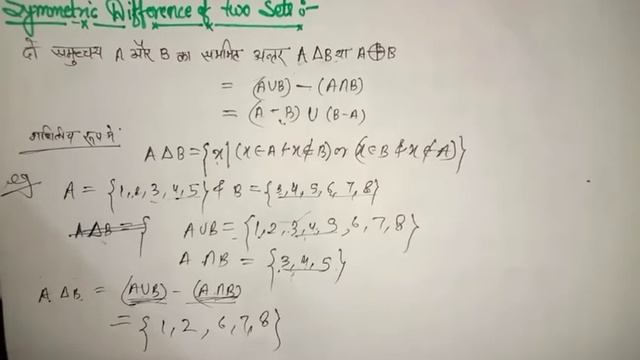 Symmetric Difference of two Sets :-
दो समुच्चय A और B का सममित अन्तर A Δ B या A⊕B
= (A∪B) − (A∩B)
= (A − B) ∪ (B-A)
गणितीय रूप में:
A Δ B = {x | (x ∈ A & x ∉ B) or (x ∈ B & x ∉ A)}
eg A = {1,2,3,4,5} & B = {3,4,5,6,7,8}
A Δ B = { A∪B = {1,2,3,4,5,6,7,8}
A ∩ B = {3,4,5}
A Δ B = (A∪B) − (A∩B)
= {1,2,6,7,8}